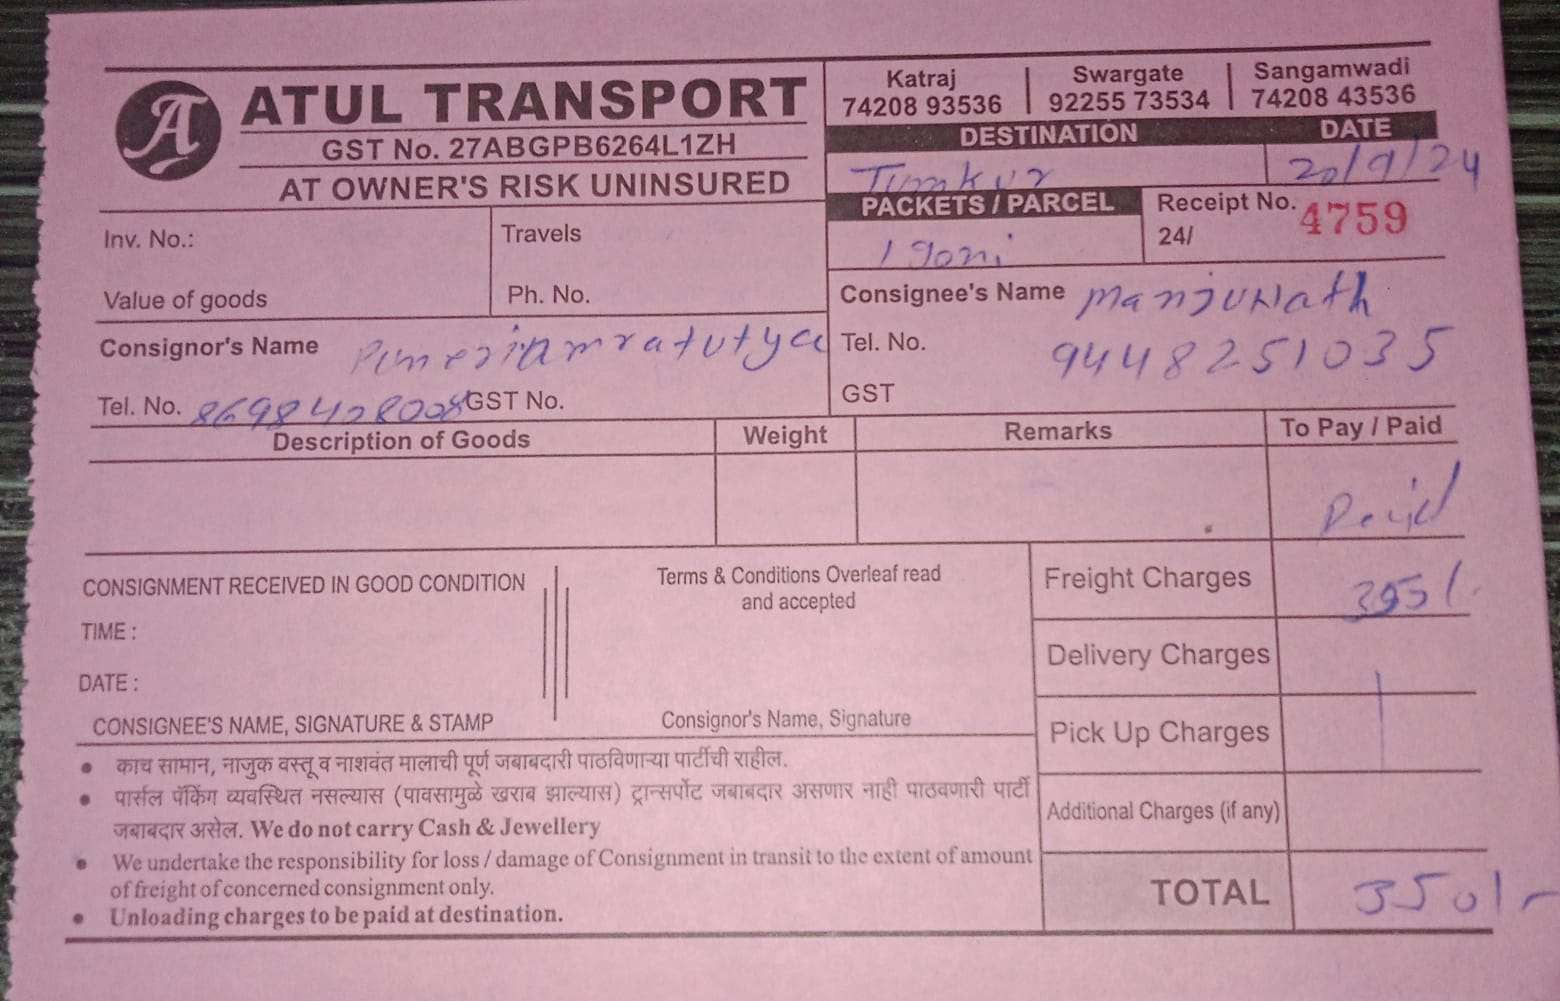 ATUL TRANSPORT
GST No. 27ABGPB6264L1ZH
AT OWNER'S RISK UNINSURED
Katraj
74208 93536
Swargate
92255 73534
Sangamwadi
74208 43536
DESTINATION
Tumkur
DATE
20/9/24
PACKETS / PARCEL
1 goni
Receipt No. 4759
24/
Inv. No.:
Value of goods
Travels
Ph. No.
Consignor's Name
Tel. No. 8698428008 GST No.
Consignee's Name Manjunath
Tel. No. 9448251035
GST
Description of Goods
Weight
Remarks
To Pay / Paid
Paid
CONSIGNMENT RECEIVED IN GOOD CONDITION
TIME :
DATE :
CONSIGNEE'S NAME, SIGNATURE & STAMP
Terms & Conditions Overleaf read
and accepted
Consignor's Name, Signature
Freight Charges 350/-
Delivery Charges
Pick Up Charges
Additional Charges (if any)
TOTAL 350/-
• काच सामान, नाजुक वस्तू व नाशवंत मालाची पूर्ण जबाबदारी पाठविणाऱ्या पार्टीची राहील.
• पार्सल पॅकिंग व्यवस्थित नसल्यास (पावसामुळे खराब झाल्यास) ट्रान्सपोर्ट जबाबदार असणार नाही पाठवणारी पार्टी
जबाबदार असेल. We do not carry Cash & Jewellery
• We undertake the responsibility for loss / damage of Consignment in transit to the extent of amount
of freight of concerned consignment only.
• Unloading charges to be paid at destination.